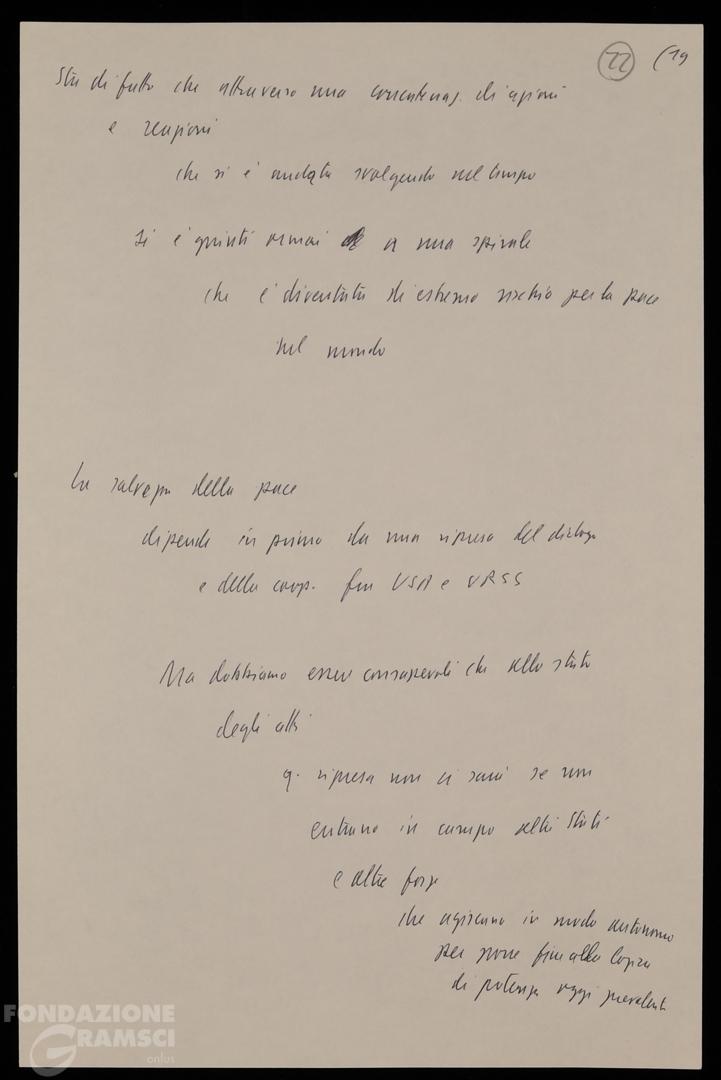 22 (19
Sta di fatto che attraverso una concatenaz. di azioni
e reazioni
che si è andata svolgendo nel tempo
si è giunti ormai a una spirale
che è diventata di estremo rischio per la pace
nel mondo
La salvezza della pace
dipende in primo da una ripresa del dialogo
e della coop. fra USA e URSS
Ma dobbiamo esser consapevoli che allo stato
degli atti
q. ripresa non ci sarà se non
entrano in campo altri Stati
e altre forze
che agiscano in modo autonomo
per porre fine alla logica
di potenza oggi prevalente
FONDAZIONE
GRAMSCI
onlus